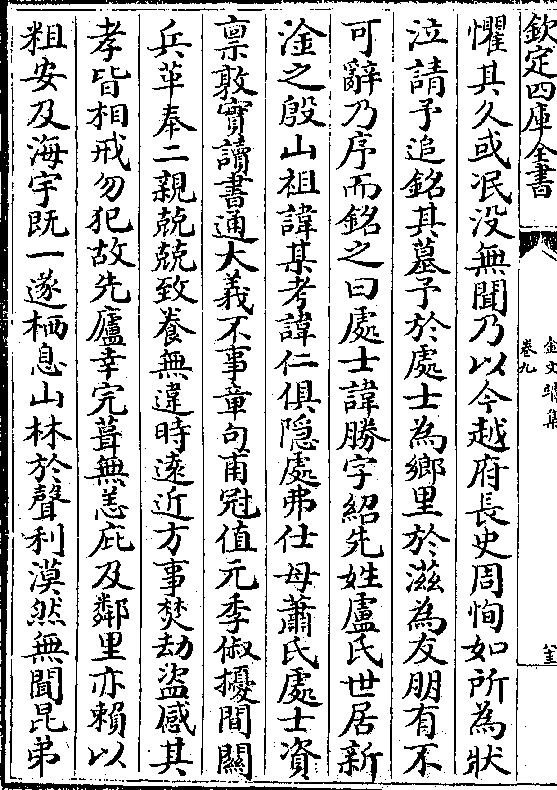 欽定四庫全書
金文靖集
卷九
懼其久或冺没無聞乃以今越府長史周恂如所為狀
泣請予追銘其墓予於處士為鄉里於滋為友朋有不
可辭乃序而銘之曰處士諱勝字紹先姓盧氏世居新
淦之殷山祖諱某考諱仁俱隐處弗仕母蕭氏處士資
禀敦實讀書通大義不事章句甫冠值元季俶擾間關
兵革奉二親兢兢致養無違時遠近方事焚刦盜感其
孝皆相戒勿犯故先廬幸完葺無恙庇及鄰里亦賴以
粗安及海宇既一遂栖息山林於聲利漠然無聞昆弟